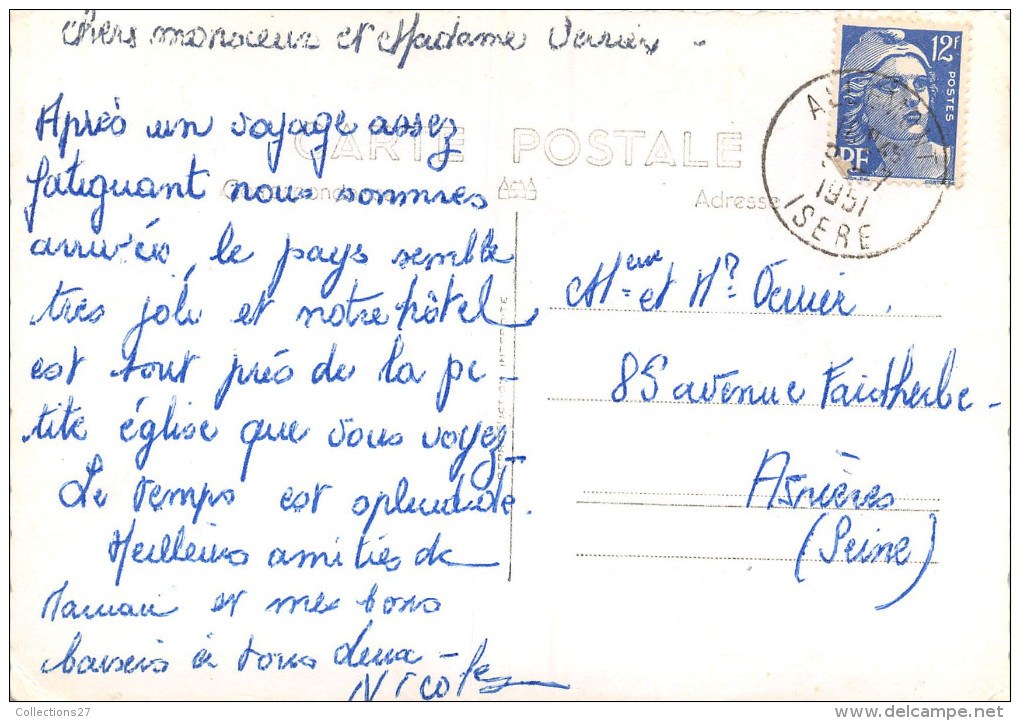 Chers monsieur et Madame Verrier -
12F
POSTES
RF
1951
ISERE
CARTE POSTALE
Correspondance
Adresse
Après un voyage assez
fatiguant nous sommes
arrivées, le pays semble
très joli et notre hôtel
est tout près de la pe-
tite église que vous voyez_
Le temps est splendide.
Meilleures amitiés de
Maman et mes bons
baisers à tous deux -
Nicole
Mme et Mr Verrier.
85 avenue Faidherbe -
Asnières
(Seine)
Collections27